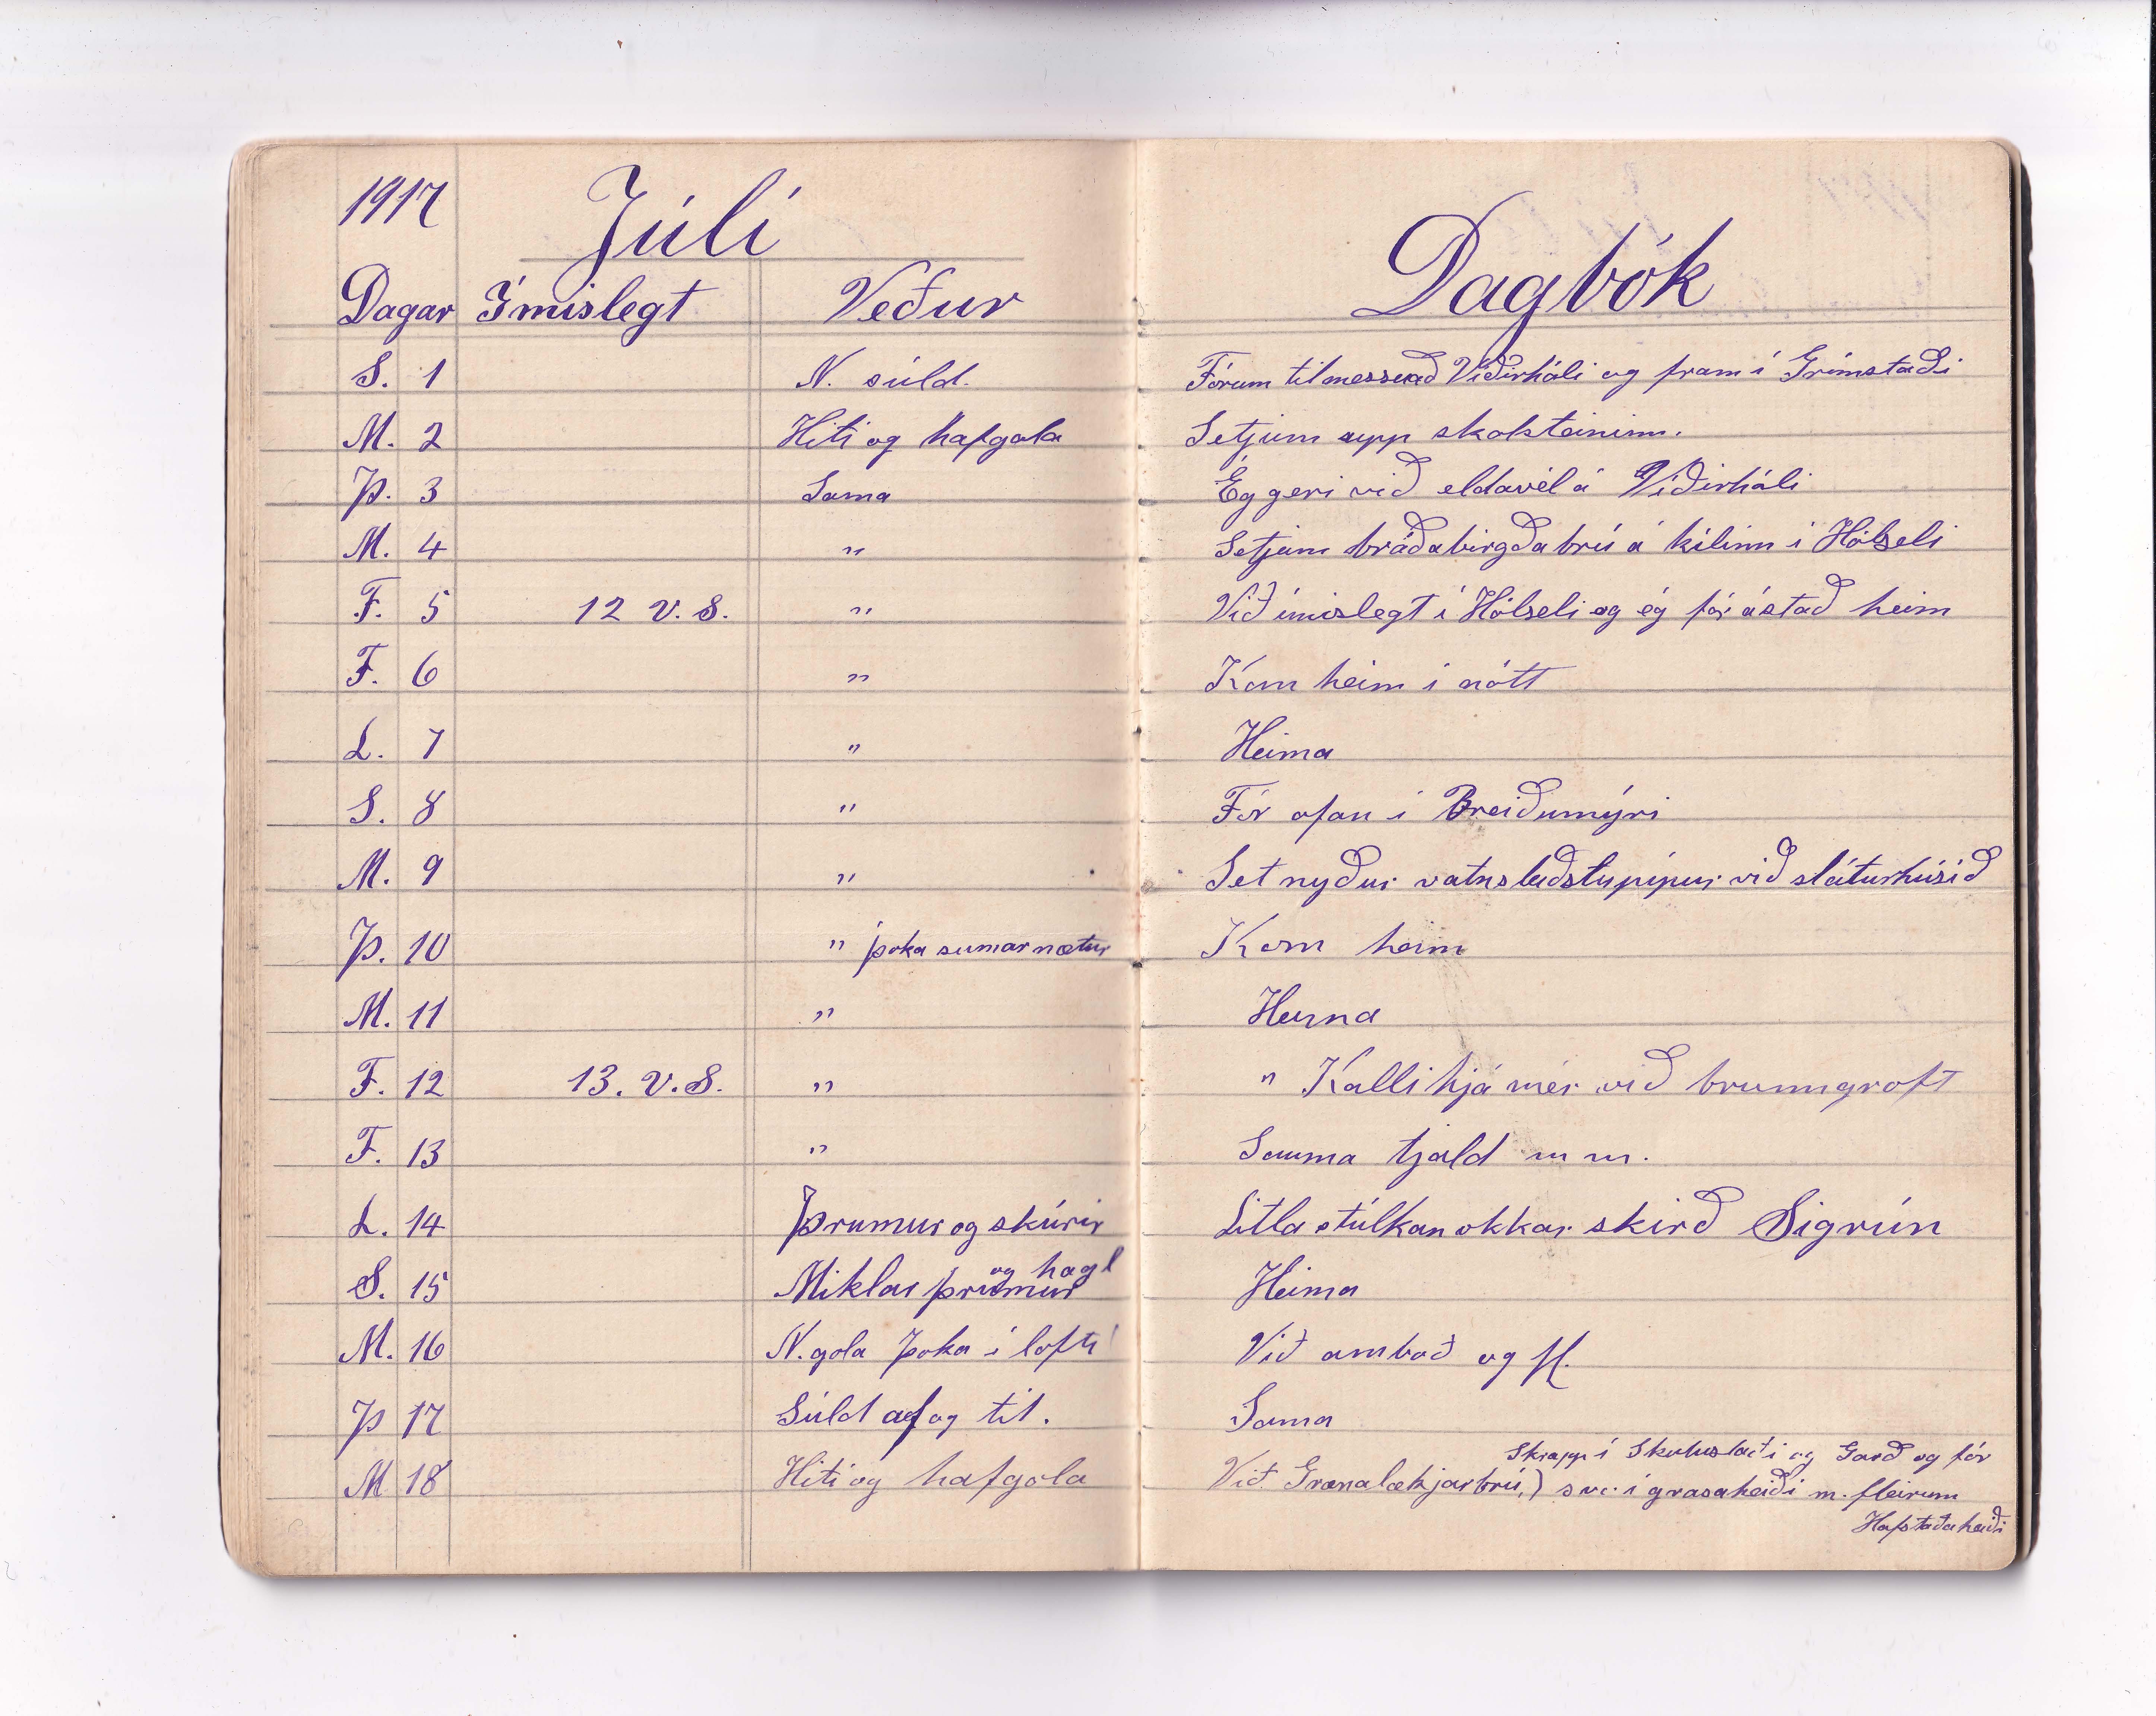 1917 Júlí
Dagbók
Dagar Ímislegt Veður
S. 1 N. súld. Fórum til messu að Víðirhóli og fram í Grímstaði
M. 2 Hiti og hafgola Setjum upp skolsteininn.
Þ. 3 Sama Ég geri við eldavél á Víðirhóli
M. 4 " Setjum bráðabirgða brú á kílinn í Hólseli
F. 5 12 v. S. " Við ímislegt í Hólseli og ég fór á stað heim
F. 6 " Kom heim í nótt
L. 7 " Heima
S. 8 " Fór ofan í Breiðumýri
M. 9 " Set nyður vatnsleðslupípur við sláturhúsið
Þ. 10 " þoka sumar nætur Kom heim
M. 11 " Heima
F. 12 13. v. S. " " Kalli hjá mér við brunngroft
F. 13 " Sauma tjald m m.
L. 14 Þrumur og skúrir Litla stúlkan okkar skírð Sigrún
og hagl
S. 15 Miklar þrumur Heima
M. 16 N. gola Þoka í lofti Við amboð og fl.
Þ 17 Súld af og til. Sama
Skrapp í Skútustaði og Garð og fór
M 18 Hiti og hafgola Við Grænalækjarbrú,) svo í grasaheiði m. fleirum
Hofstaðaheiði